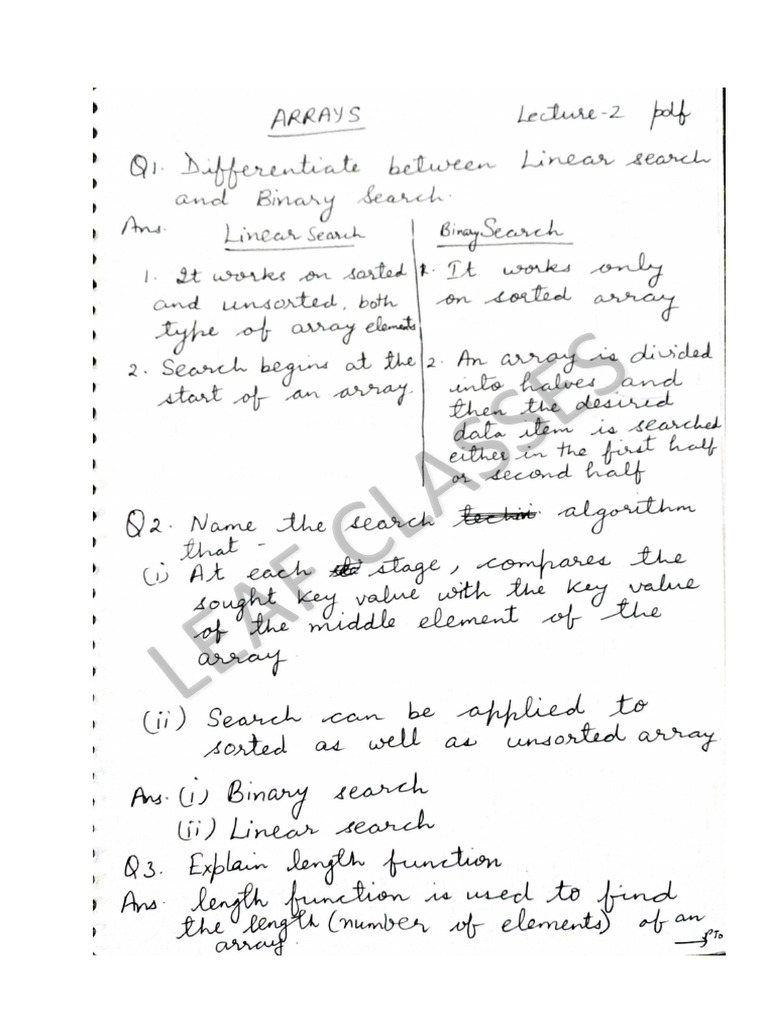 ARRAYS Lecture-2 pdf
Q1. Differentiate between Linear search
and Binary Search.
Ans. Linear Search
1. It works on sorted
and unsorted, both
type of array elements
2. Search begins at the
start of an array.
Binary Search
1. It works only
on sorted array
2. An array is divided
into halves and
then the desired
data item is searched
either in the first half
or second half
Q2. Name the search algorithm
that -
(i) At each stage, compares the
sought key value with the key value
of the middle element of the
array
(ii) Search can be applied to
sorted as well as unsorted array
Ans. (i) Binary search
(ii) Linear search
Q3. Explain length function
Ans. length function is used to find
the length (number of elements) of an
array.
PTO
LEAF CLASSES